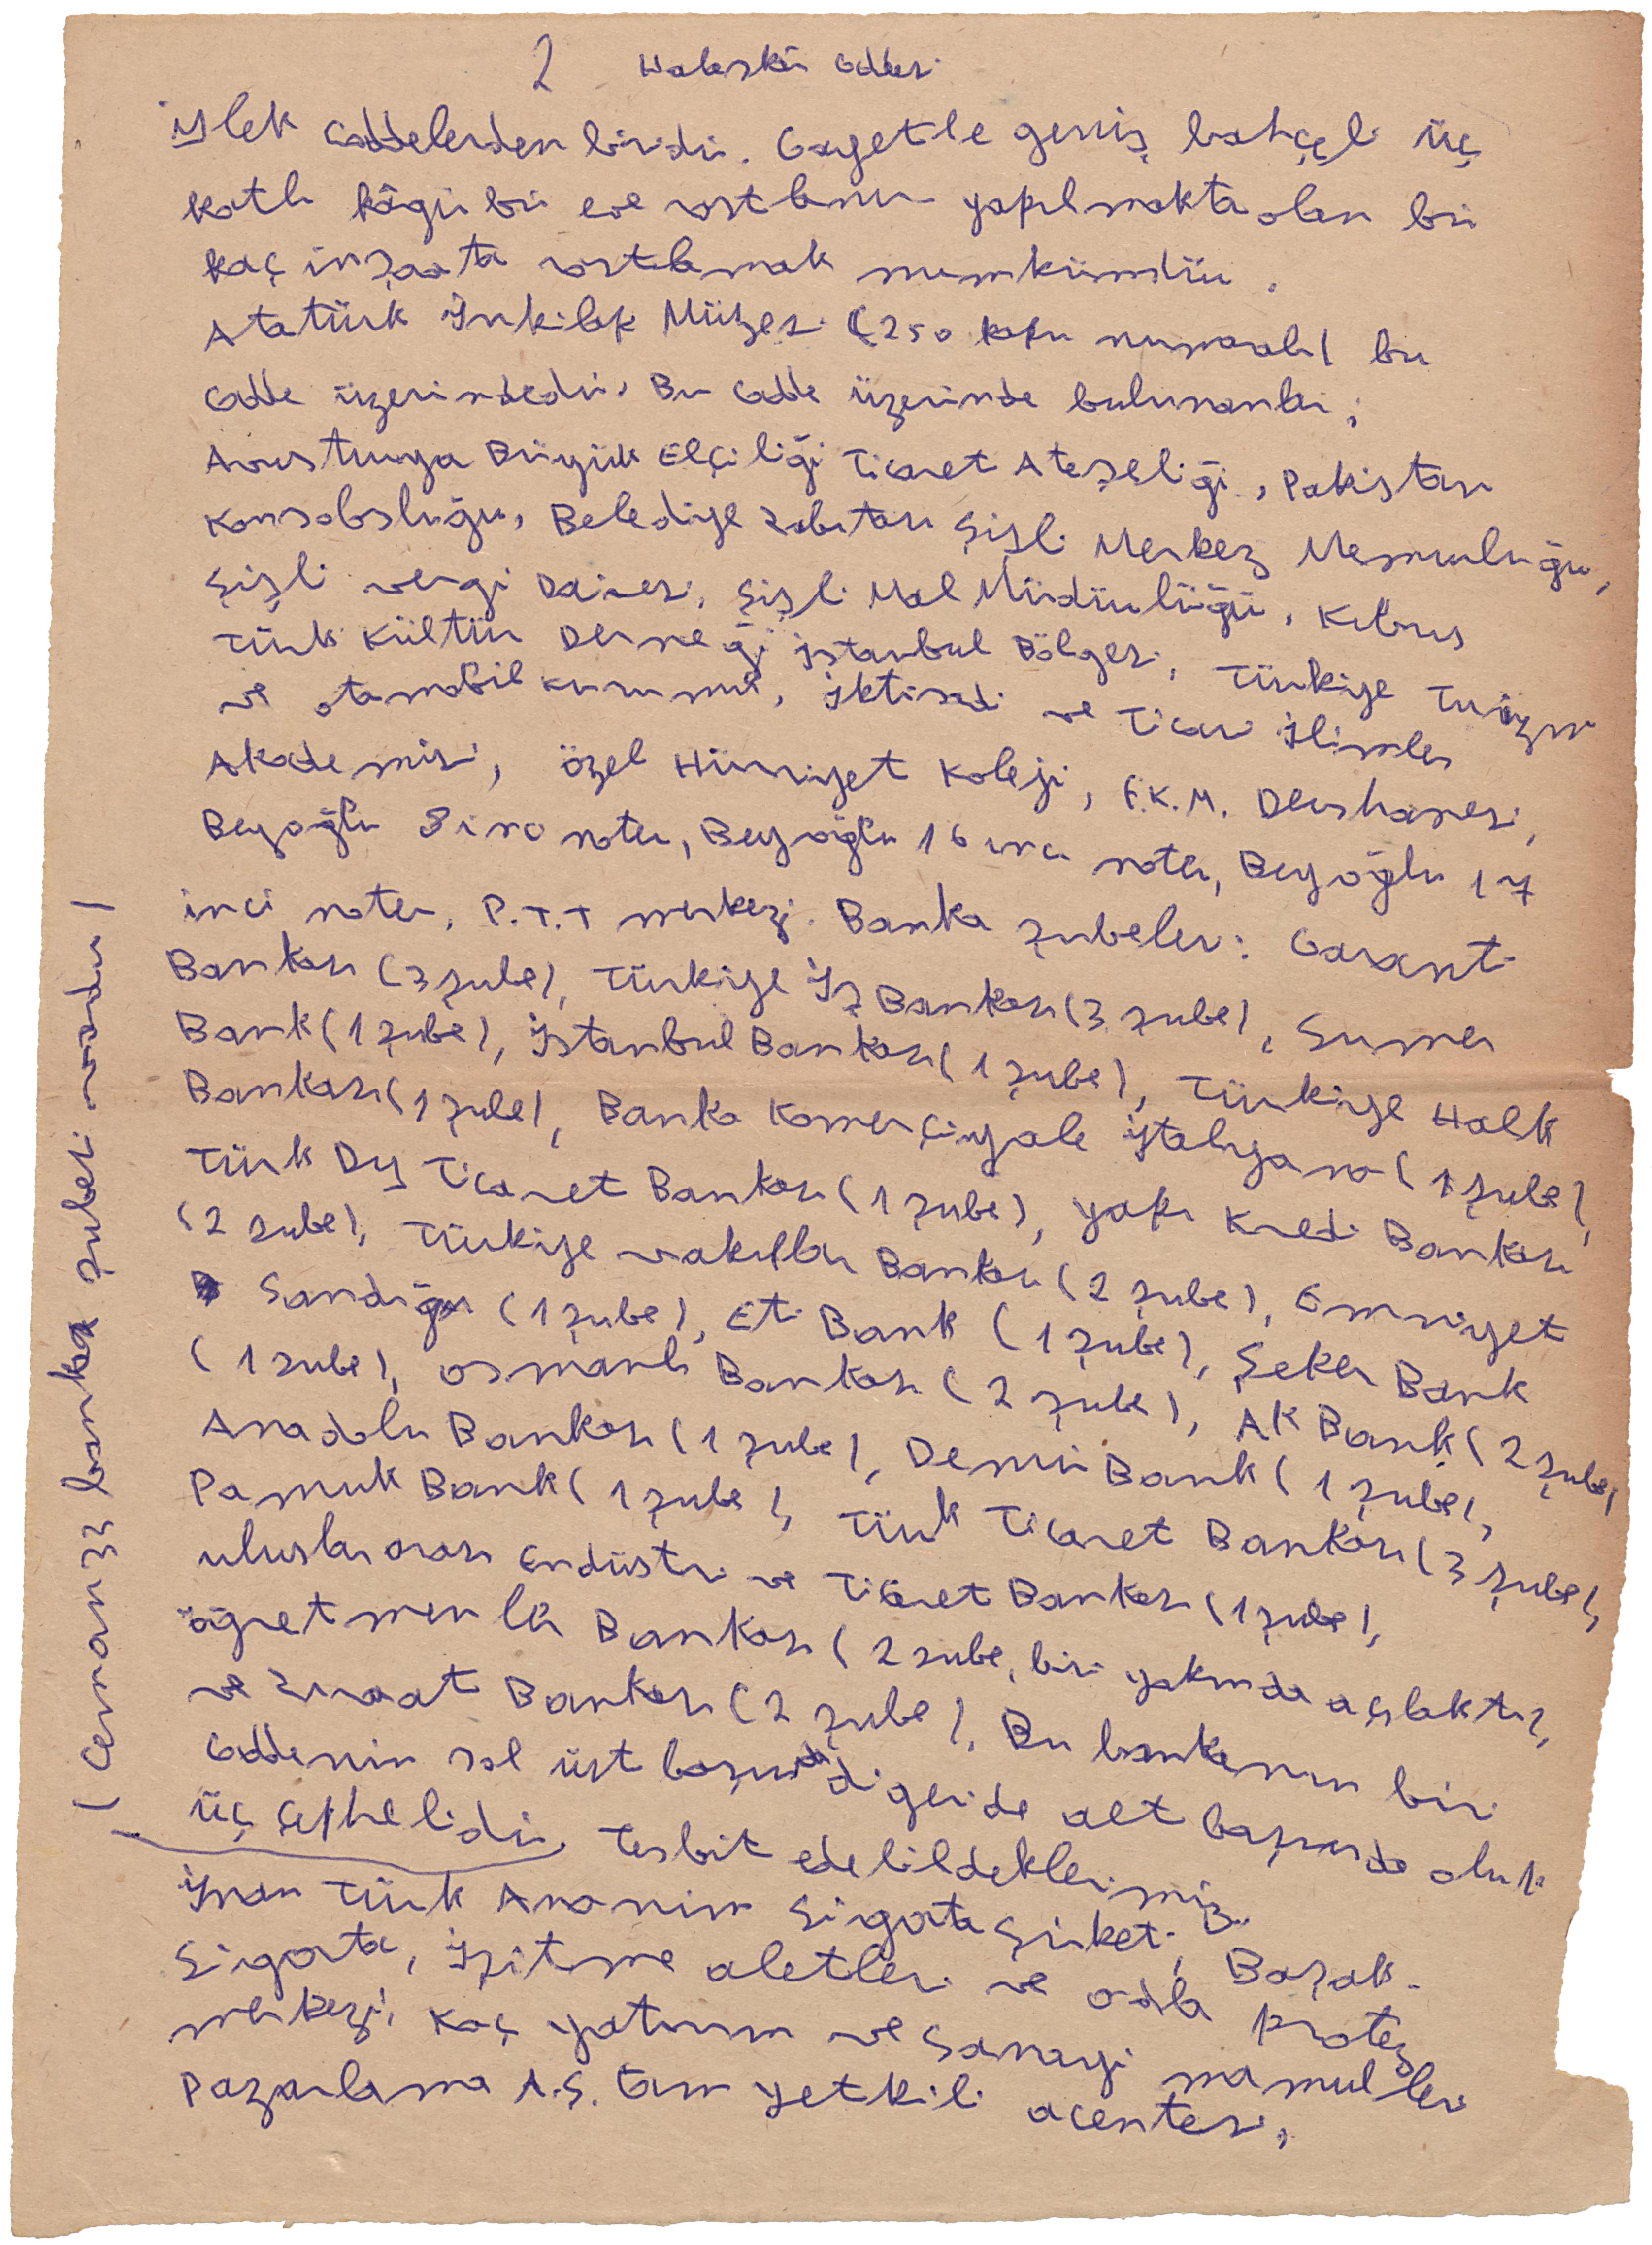 2 Halaskâr Caddesi
işlek caddelerden biridir. Gayetle geniş bahçeli üç
katlı kâgir bir eve rastlanır yapılmakta olan bir
kaç inşaata rastlamak mümkündür.
Atatürk İnkilap Müzesi (250 kapu numaralı) bu
cadde üzerindedir. Bu cadde üzerinde bulunanlar;
Avusturya Büyük Elçiliği Ticaret Ateşeliği, Pakistan
Konsolosluğu, Belediye Zabıtası Şişli Merkez Memurluğu,
Şişli Vergi Dairesi, Şişli Mal Müdürlüğü, Kıbrıs
Türk Kültür Derneği İstanbul Bölgesi, Türkiye Turizm
ve otomobil kurumu, İktisadi ve Ticari İlimler
Akademisi, Özel Hürriyet Koleji, F.K.M. Dershanesi,
Beyoğlu 8 inci noter, Beyoğlu 16 ıncı noter, Beyoğlu 17
inci noter, P.T.T merkezi. Banka şubeleri: Garanti
Bankası (3 şube), Türkiye İş Bankası (3 şube), Sümer
Bank (1 şube), İstanbul Bankası (1 şube), Türkiye Halk
Bankası (1 şube), Banka Komerçiyale İtalyana (1 şube),
Türk Dış Ticaret Bankası (1 şube), Yapı Kredi Bankası
(2 şube), Türkiye Vakıflar Bankası (2 şube), Emniyet
Sandığı (1 şube), Eti Bank (1 şube), Şeker Bank
(1 şube), Osmanlı Bankası (2 şube), Ak Bank (2 şube)
Anadolu Bankası (1 şube), Demir Bank (1 şube),
Pamuk Bank (1 şube), Türk Ticaret Bankası (3 şube),
Uluslararası Endüstri ve Ticaret Bankası (1 şube),
Öğretmenler Bankası (2 şube, biri yakında açılaktır),
ve Ziraat Bankası (2 şube), Bu bankanın biri
Caddenin sol üst başında digeride alt başında olup
üç çephelidir. Tesbit edebildeklerimiz
İnan Türk Anonim Sigorta Şirketi, Başak
Sigorta, İşitme aletleri ve odla protez
merkezi, Koç yatırım ve Sanayi mamulleri
Pazarlama A.Ş. tam yetkili acentesi,
(Cem'an 33 banka şubesi vardır)